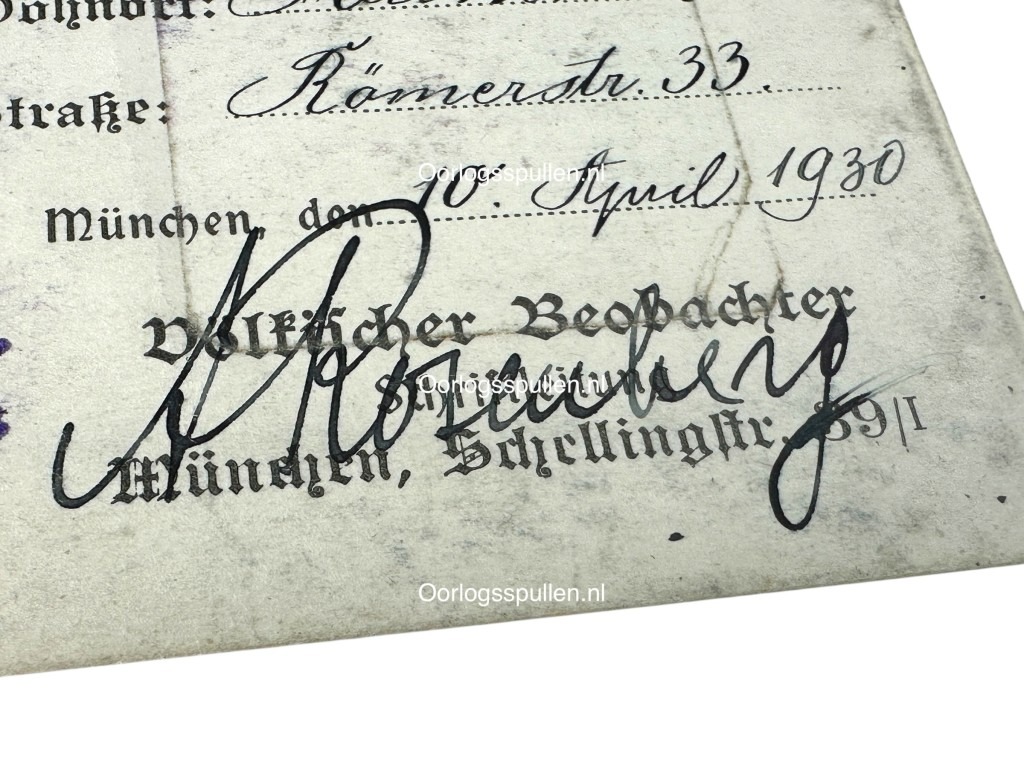 Wohnort:
Straße: Römerstr. 33.
Oorlogsspullen.nl
München, den 10. April 1930
Völkischer Beobachter
Schriftleitung
Oorlogsspullen.nl
München, Schellingstr. 39/I
A Rosenberg
Oorlogsspullen.nl